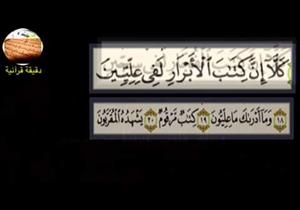 دقيقة قرآنية
كَلَّآ إِنَّ كِتَٰبَ ٱلْأَبْرَارِ لَفِى عِلِّيِّينَ
١٨ وَمَآ أَدْرَىٰكَ مَا عِلِّيُّونَ ١٩ كِتَٰبٌ مَّرْقُومٌ ٢٠ يَشْهَدُهُ ٱلْمُقَرَّبُونَ